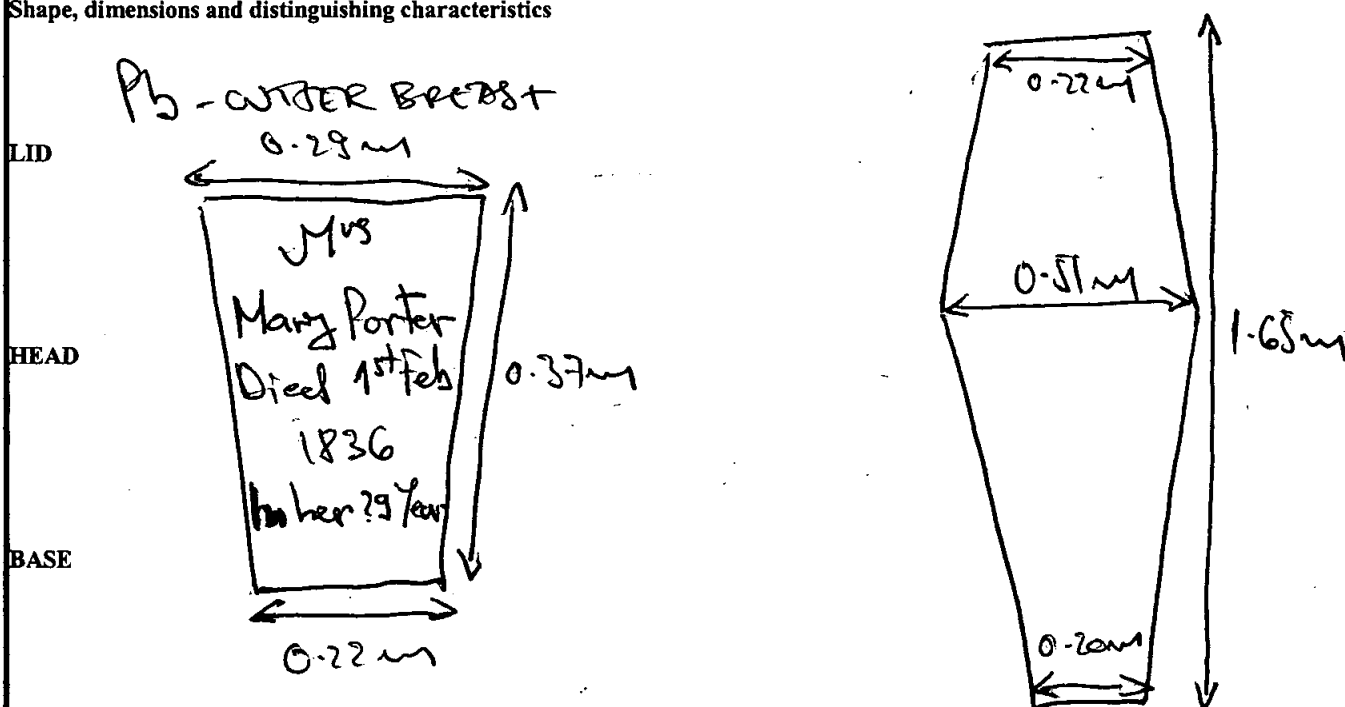 Shape, dimensions and distinguishing characteristics
Pb - OUTER BREAST
LID
0.29m
Mrs
Mary Porter
HEAD
Died 1st Feb
1836
In her ?9 Year
BASE
0.37m
0.22m
0.22m
0.51m
1.65m
0.20m